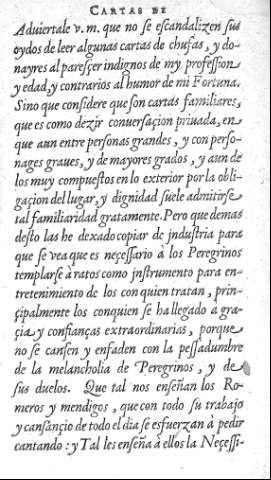 CARTAS DE
Aduiertale v.m. que no se escandalizen sus
oydos de leer algunas cartas de chufas, y do-
nayres al paresçer indignos de my profession
y edad, y contrarios al humor de mi Fortuna.
Sino que considere que son cartas familiares,
que es como dezir conuersaçion priuada, en
que aun entre personas grandes, y con perso-
nages graues, y de mayores grados, y aun de
los muy compuestos en lo exterior por la obli-
gaçion del lugar, y dignidad suele admitirse
tal familiaridad gratamente. Pero que demas
desto las he dexado copiar de jndustria para
que se vea que es neçessario à los Peregrinos
templarse à ratos como jnstrumento para en-
tretenimiento de los con quien tratan, prin-
çipalmente los con quien se ha llegado a gra-
çia y confianças extraordinarias, porque
no se cansen y enfaden con la pessadumbre
de la melancholia de Peregrinos, y de
sus duelos. Que tal nos enseñan los Ro-
meros y mendigos, que con todo su trabajo
y cansançio de todo el dia se esfuerzan à pedir
cantando: y Tal les enseña à ellos la Neçessi-